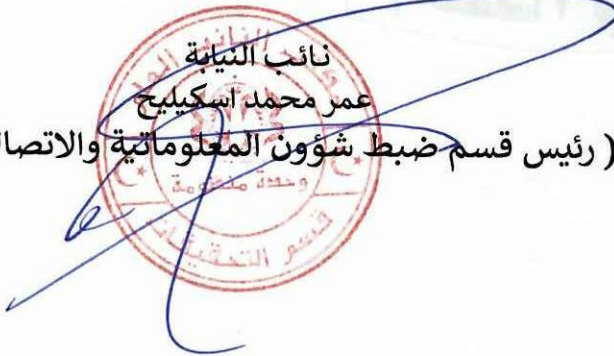 نائب النيابة
عمر محمد اسكيليح
( رئيس قسم ضبط شؤون المعلوماتية والاتصال
وحدة منظومة
قسم التحقيقات